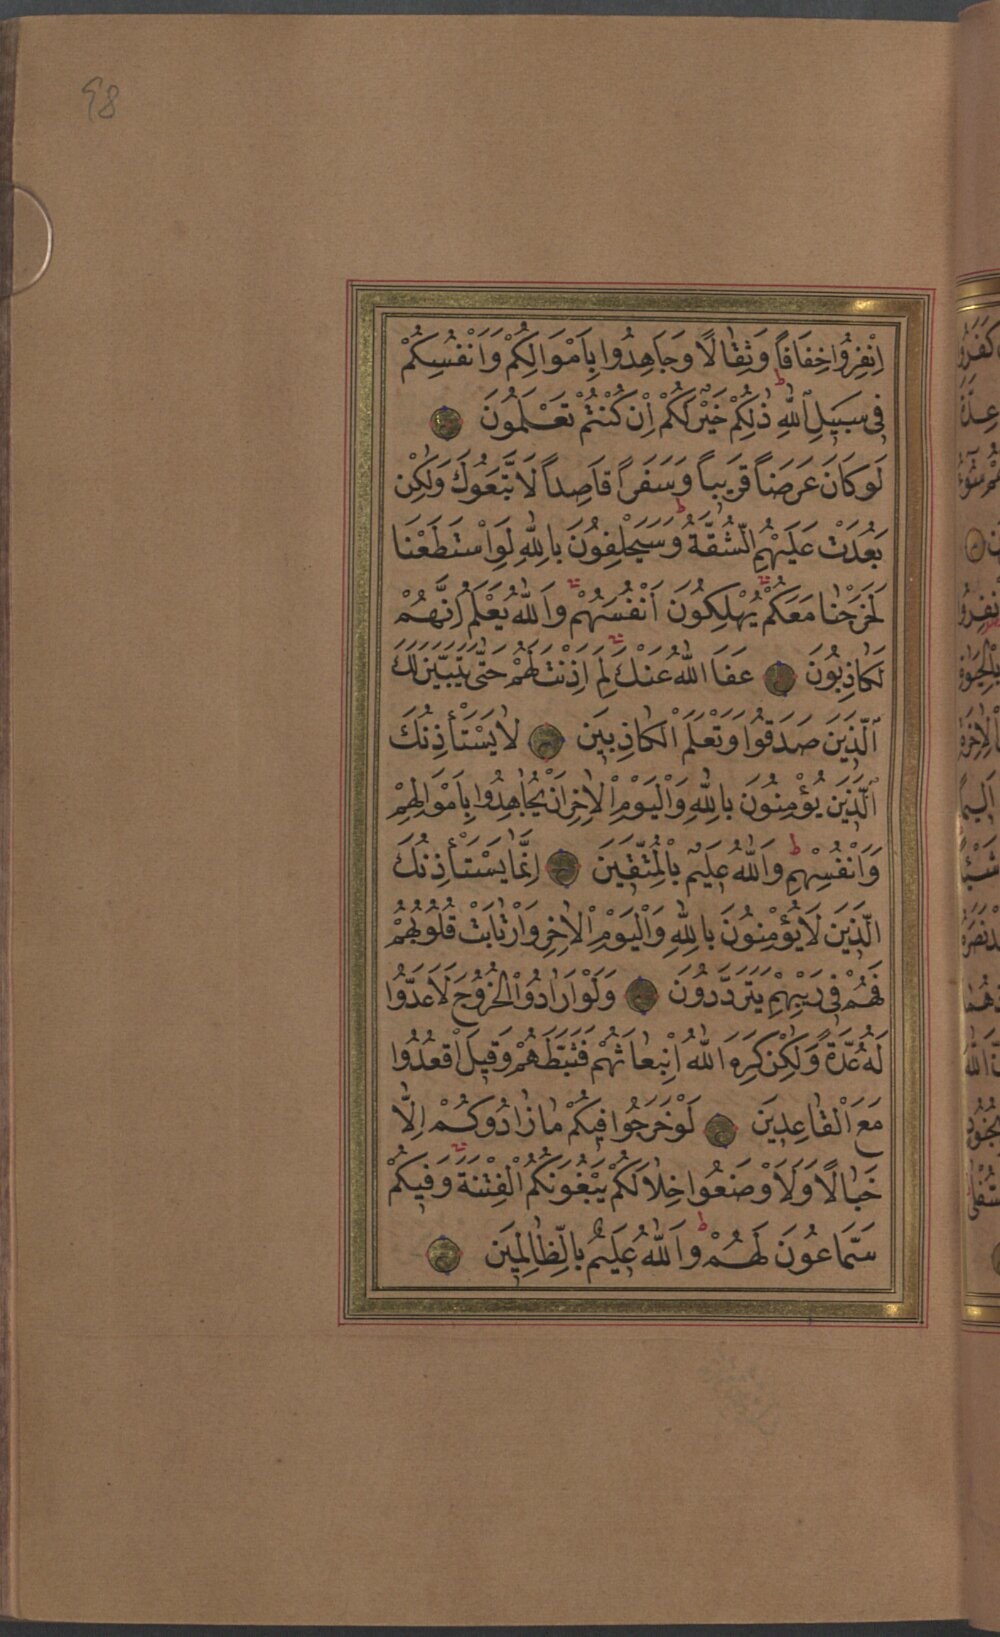 98
اِنْفِرُوا خِفَافاً وَثِقَالًا وَجَاهِدُوا بِاَمْوَالِكُمْ وَاَنْفُسِكُمْ
فِي سَبِيلِ اللهِ ذٰلِكُمْ خَيْرٌ لَكُمْ اِنْ كُنْتُمْ تَعْلَمُونَ
لَوْ كَانَ عَرَضاً قَرِيباً وَسَفَراً قَاصِداً لَاتَّبَعُوكَ وَلٰكِنْ
بَعُدَتْ عَلَيْهِمُ الشُّقَّةُ وَسَيَحْلِفُونَ بِاللهِ لَوِ اسْتَطَعْنَا
لَخَرَجْنَا مَعَكُمْ يُهْلِكُونَ اَنْفُسَهُمْ وَاللهُ يَعْلَمُ اِنَّهُمْ
لَكَاذِبُونَ عَفَا اللهُ عَنْكَ لِمَ اَذِنْتَ لَهُمْ حَتّٰى يَتَبَيَّنَ لَكَ
الَّذِينَ صَدَقُوا وَتَعْلَمَ الْكَاذِبِينَ لَا يَسْتَأْذِنُكَ
الَّذِينَ يُؤْمِنُونَ بِاللهِ وَالْيَوْمِ الْاٰخِرِ اَنْ يُجَاهِدُوا بِاَمْوَالِهِمْ
وَاَنْفُسِهِمْ وَاللهُ عَلِيمٌ بِالْمُتَّقِينَ اِنَّمَا يَسْتَأْذِنُكَ
الَّذِينَ لَا يُؤْمِنُونَ بِاللهِ وَالْيَوْمِ الْاٰخِرِ وَارْتَابَتْ قُلُوبُهُمْ
فَهُمْ فِي رَيْبِهِمْ يَتَرَدَّدُونَ وَلَوْ اَرَادُوا الْخُرُوجَ لَاَعَدُّوا
لَهُ عُدَّةً وَلٰكِنْ كَرِهَ اللهُ انْبِعَاثَهُمْ فَثَبَّطَهُمْ وَقِيلَ اقْعُدُوا
مَعَ الْقَاعِدِينَ لَوْ خَرَجُوا فِيكُمْ مَا زَادُوكُمْ اِلَّا
خَبَالًا وَلَاَوْضَعُوا خِلَالَكُمْ يَبْغُونَكُمُ الْفِتْنَةَ وَفِيكُمْ
سَمَّاعُونَ لَهُمْ وَاللهُ عَلِيمٌ بِالظَّالِمِينَ